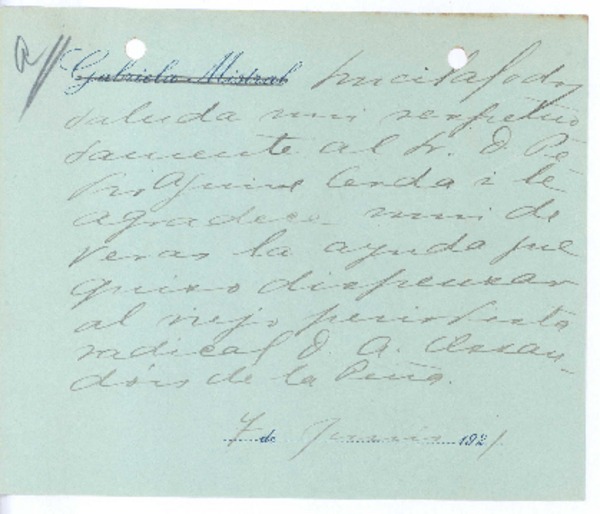 a
Gabriela Mistral Lucila Godoy
saluda mui respetuo
samente al Sr. D. Pe
dro Aguirre Cerda i le
agradece mui de
veras la ayuda que
quiso dispensar
al viejo periodista
radical D. A.
de la Peña.
7 de Junio 1921